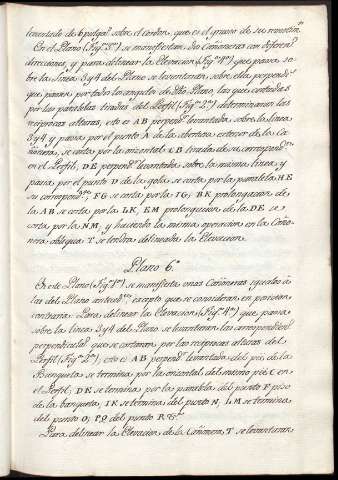 levantado de 6 pulgas sobre el cordon, que es el grueso de su revestimto
En el Plano (Figa 3a) se manifiestan dos Cañoneras con diferens
direcciones, y para delinear la Elevacion (Figa 4a) que pasa so-
bre la Linea 3 y 4 del Plano se levantaran sobre ella perpends
que pasen por todos los angulos de dho Plano, las que cortadas
por las paralelas tiradas del Perfil (Figa 2a) determinaran las
reciprocas alturas; esto es AB perpendr levantada sobre la linea
3 y 4 y pasa por el punto A de la abertura exterior de la Ca-
ñonera, se corta por la orizontal CB tirada de su correspondte
en el Perfil; DE perpendr levantada sobre la misma linea, y
pasa por el punto D de la gola se corta por la paralela HE
su correspondte; FG se corta por la IG; BK prolongacion de
la AB se corta por la LK, EM prolongacion de la DE se
corta por la NM; y haciendo la misma operacion en la Caño-
nera obliqua T se tendra delineada la Elevacion.
Plano 6o
En este Plano (Figa 1a) se manifiesta unas Cañoneras iguales à
las del Plano antecedte, excepto que se consideran en posicion
contraria. Para delinear la Elevacion (Figa 4a) que pasa
sobre la linea 3 y 4 del Plano se levantaran las correspondientes
perpendiculars que se cortaran por las reciprocas alturas del
Perfil (Figa 2a); esto es AB perpendr levantada del pie de la
Banqueta se termina por la orizontal del mismo pie C en
el Perfil; DE se termina por la paralela del punto F piso
de la banqueta, IK se termina del punto N, LM se termina
del punto O; PQ del punto R &a
Para delinear la Elevacion de la Cañonera T se levantaran